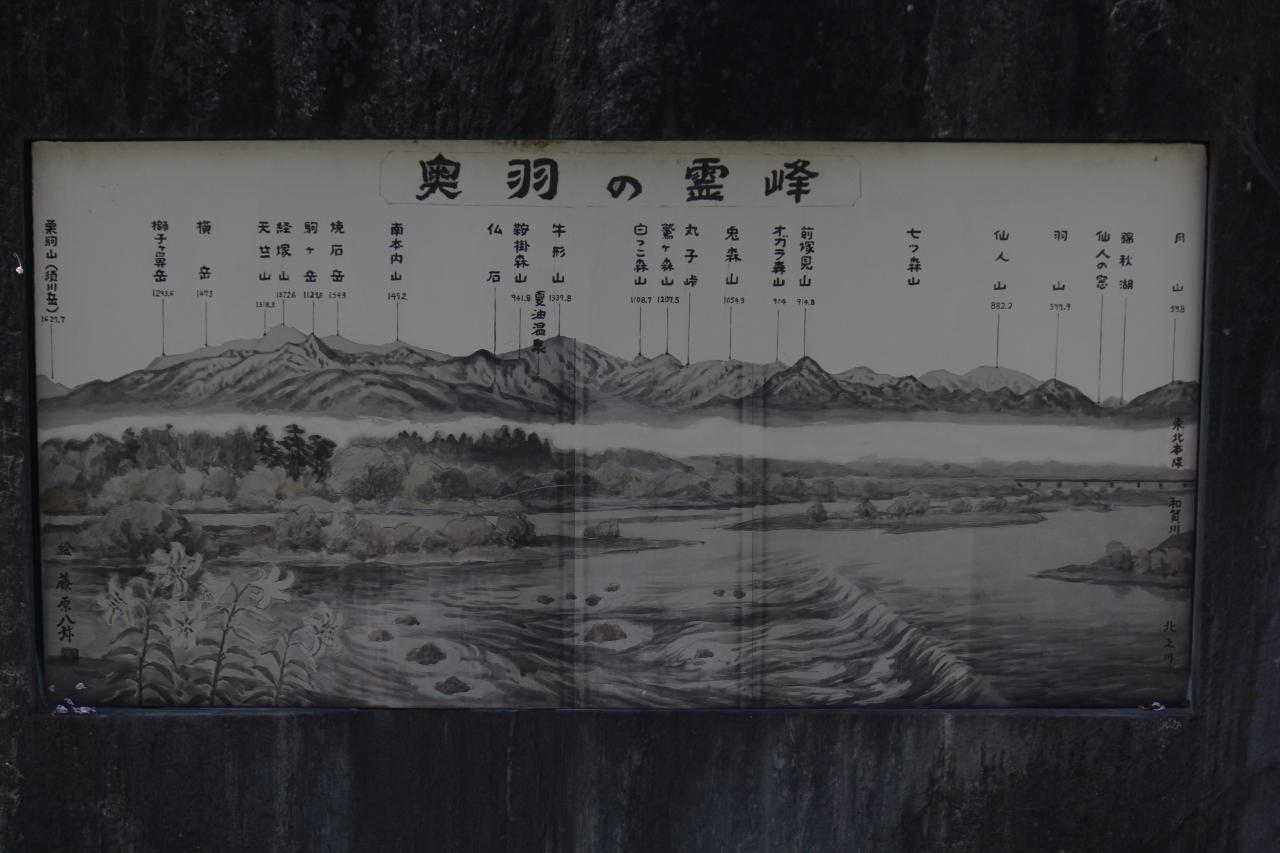 奥羽の霊峰
栗駒山(須川岳)
1627.7
獅子ヶ鼻岳
1293.6
横岳
1473
天竺山
1318.3
経塚山
1372.6
駒ヶ岳
焼石岳
1548
南本内山
1492
仏石
鞍掛森山
941.8
夏油温泉
牛形山
1339.8
白っこ森山
1108.7
鷲ヶ森山
1207.5
丸子峠
兎森山
1054.3
オガラ森山
914
前塚見山
914.8
七ツ森山
仙人山
882.2
羽山
599.9
仙人の窓
錦秋湖
月山
598
東北本線
和賀川
北上川
絵 藤原八弥